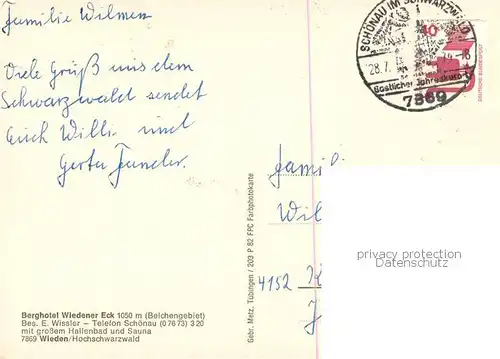 Familie Wilmen
Viele Grüß aus dem
Schwarzwald sendet
Euch Willi und
Gerta
Berghotel Wiedener Eck 1050 m (Belchengebiet)
Bes. E. Wissler – Telefon Schönau (07673) 320
mit großem Hallenbad und Sauna
7869 Wieden/Hochschwarzwald
Gebr. Metz, Tübingen / 203 P 82 FPC Farbphotokarte
SCHÖNAU IM SCHWARZWALD
28.7.
Köstlicher Jahreskurort
7869
40
DEUTSCHE BUNDESPOST
Fami
Wil
4152
privacy protection
VeryImportantLot.com